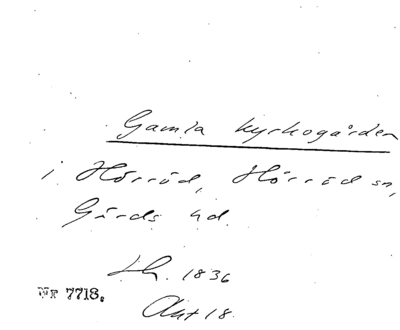 Gamla kyrkogården
i Hörröd, Hörröd sn,
Gärds hd.
Lh. 1836
Nr 7718.
Akt 18.